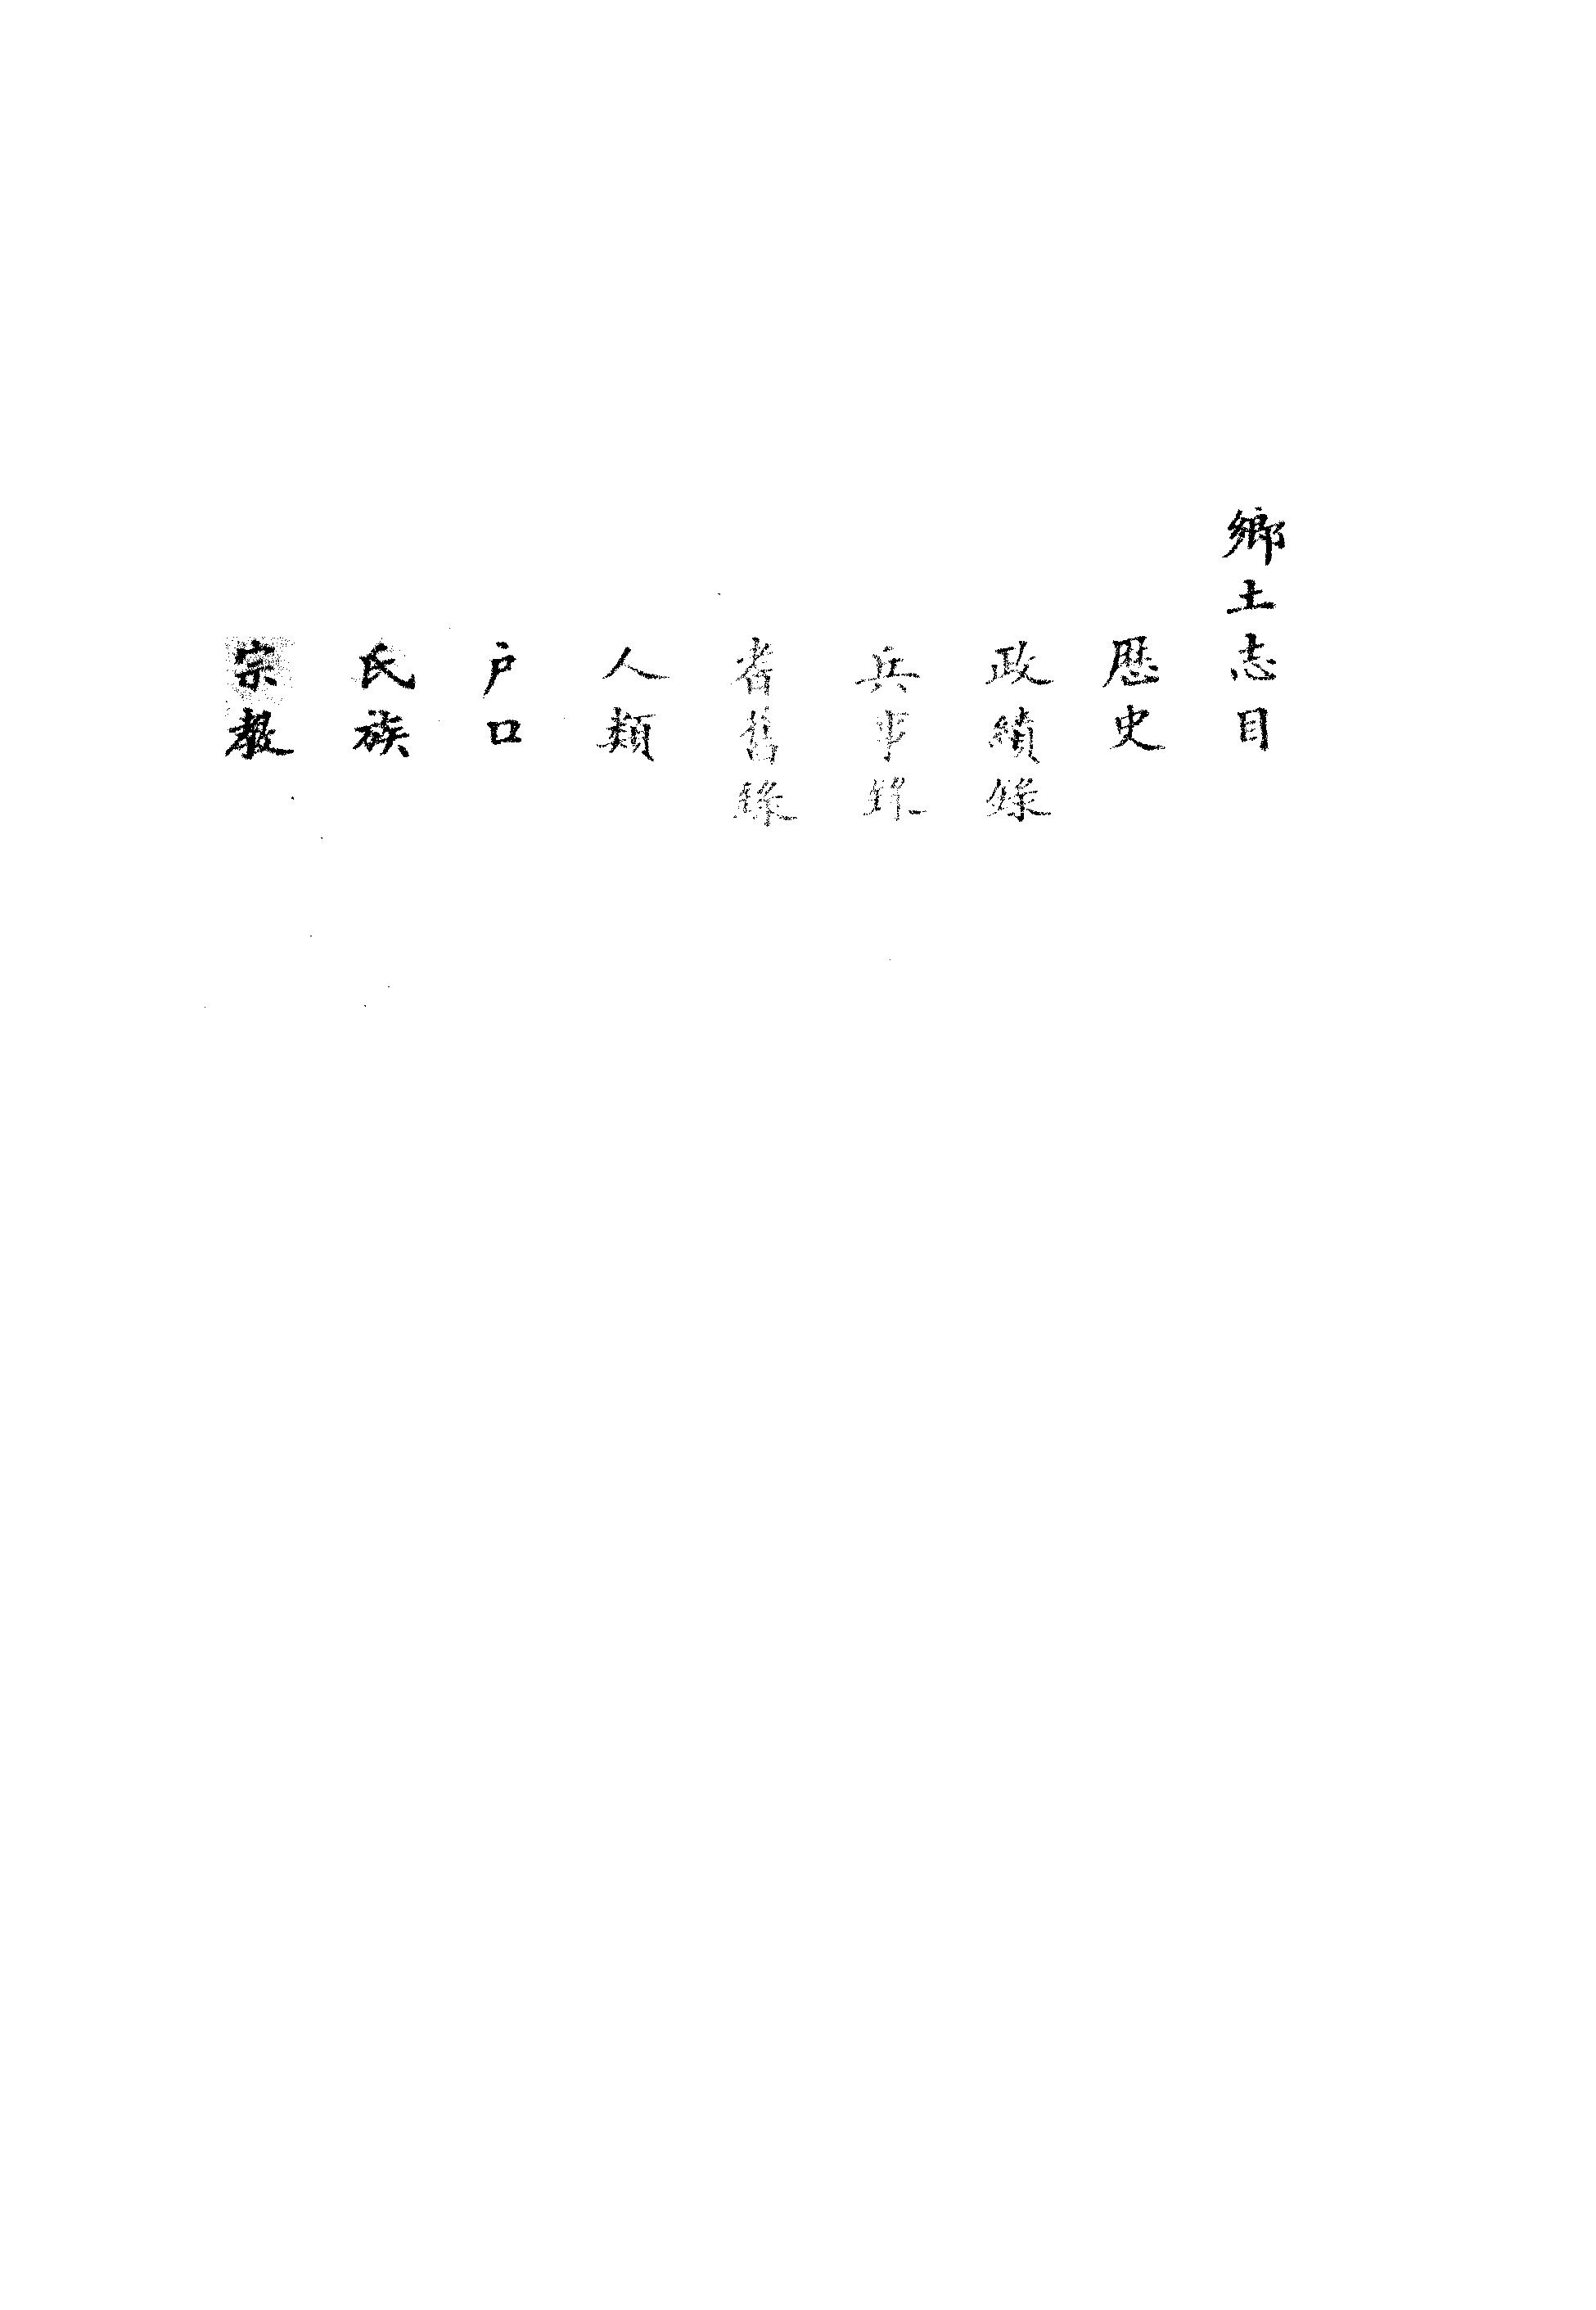 鄉土志目
歷史
政績錄
兵事錄
耆舊錄
人類
户口
氏族
宗教